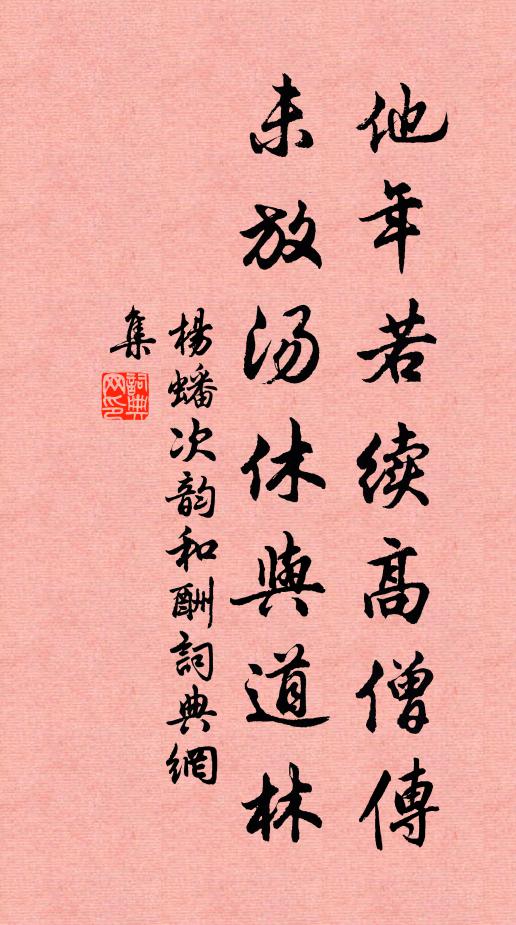 他年若续高僧傳
未放汤休與道林
楊蟠次韵和酬詞典網
集
詞典
网印